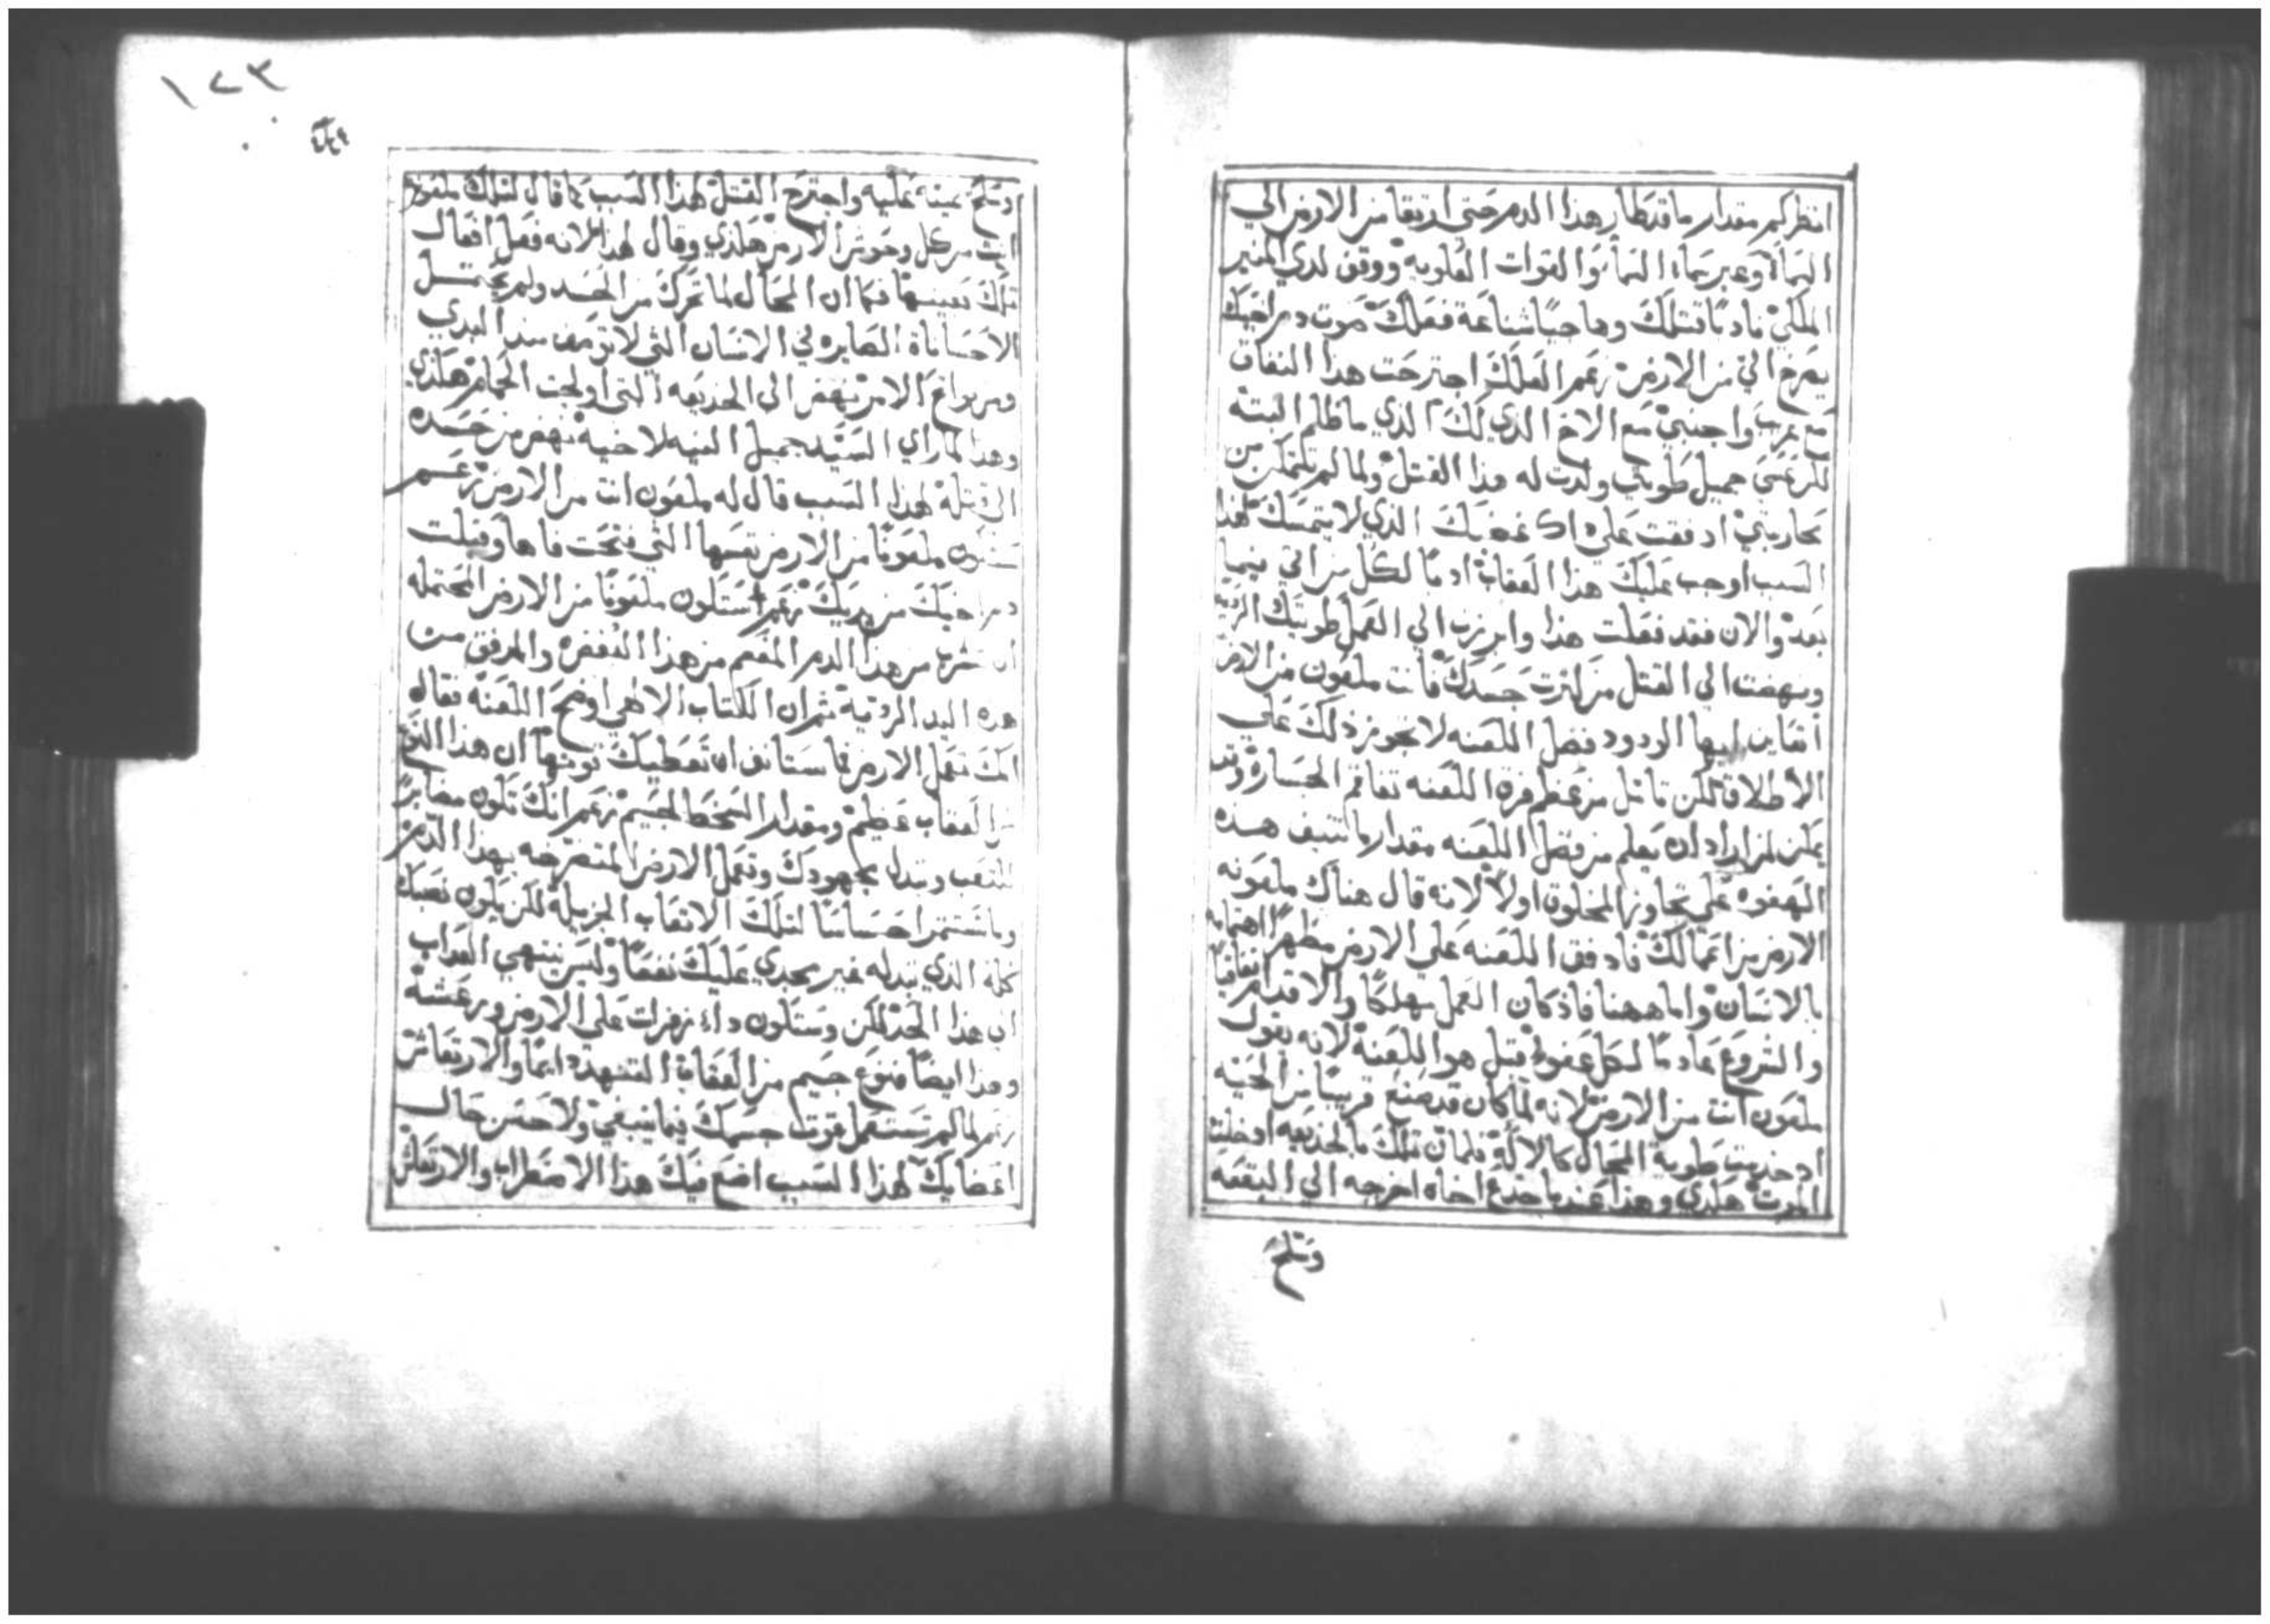 انظر كم مقدار ما قد طار هذا الدم حتي ارتقا من الارض الي
السماء وعبر سماء السماء والقوات العلويه ووقف لدي المنبر
الملكي نادبًا قتلك وهاجيًا شناعة فعلك صوت دم اخيك
يصرخ الي من الارض نعم العلك اجترحت هذا النفاق
مع غريب واجنبي مع الاخ الذي لك الذي ما ظلم البتة
لكن عسي جميل طويتي ولدت له هذا القتل ولما لم تتمكن من
محاربتي ادفقت علي اك غضبك الذي لا يتمسك لهذا
السبب اوجب عليك هذا العقاب ادبًا لكل من اتي فيما
بعد والان فقد فعلت هذا وابرزت الي العمل طويتك الرديه
ونهضت الي القتل من كثرت حسدك فانت ملعون من الارض
اتعاين ايها الودود فضل اللعنه لا تجوز ذلك علي
الاطلاق لكن تامل من عظم فرق اللعنه تفاقم الجسارة وقد
يمكن لمن اراد ان يعلم من فضل اللعنه مقدار ما تنيف هذه
الهفوه علي تجاوز المخلوق اولاً لانه قال هناك ملعونه
الارض من اعمالك فادفق اللعنه علي الارض مظهرًا اهتمامه
بالانسان واما ههنا فاذ كان العمل مهلكًا والاقدام نفاقيًا
والشروع عادمًا لكل عفو قبل هو اللعنة لانه يقول
ملعون انت من الارض لانه لما كان قد صنع قريبًا من الحيه
اد خدمت طوية المحال كالالة فلما تلك بالخديعه ادخلت
الموت هكذي وهذا عندما خدع اخاه اخرجه الي البقعه
وسلح
١٧٣
وسلح يمينه عليه واجترح القتل لهذا السبب كما قال لتلك ملعونه
انت من كل وحوش الارض هكذي وقال لهذا لانه فعل افعال
تلك بعينها فكما ان المحال لما تحرك من الحسد ولم يحتمل
الاحسانات الصايره الي الانسان التي لا توصف منذ البدي
ومن بواغ الامر نهض الي الخديعه التي اولجت الحمام هكذي
وهذا لما راي السيد جميل النيه لاخيه نهض من حسده
الي قتله لهذا السبب قال له ملعون انت من الارض نعم
ستكون ملعونًا من الارض نفسها التي فتحت فاها وقبلت
دم اخيك من يديك نعم ستكون ملعونًا من الارض المحتمله
ان تشرب من هذا الدم المفعم من هذا النفض والمدفق من
هذه اليد الرديه ثم ان الكتاب الالهي اوضح اللعنة فقال
انك تعمل الارض فما ستانف ان تعطيك قوتها ان هذا النوع
من العقاب عظيم ومقدار السخط لجسيم نعم انك تكون مصابرًا
للتعب وتبدل مجهودك وتعمل الارض المنضرخه بهذا الدم
وما تستمر احساسًا لتلك الاتعاب الجزيلة لكن يكون تعبك
كله الذي تبدله غير مجدي عليك نفعًا وليس ينتهي العداب
ان هذا الحد لكن وستكون داء زفرات علي الارض ورعشة
وهذا ايضًا فنوع جسيم من العقاب التنهد دايمًا والارتعاش
نعم لما لم تستعمل قوت جسمك فيما ينبغي ولا حسن حال
اعضايك لهذا السبب اضع فيك هذا الاضطراب والارتعاش